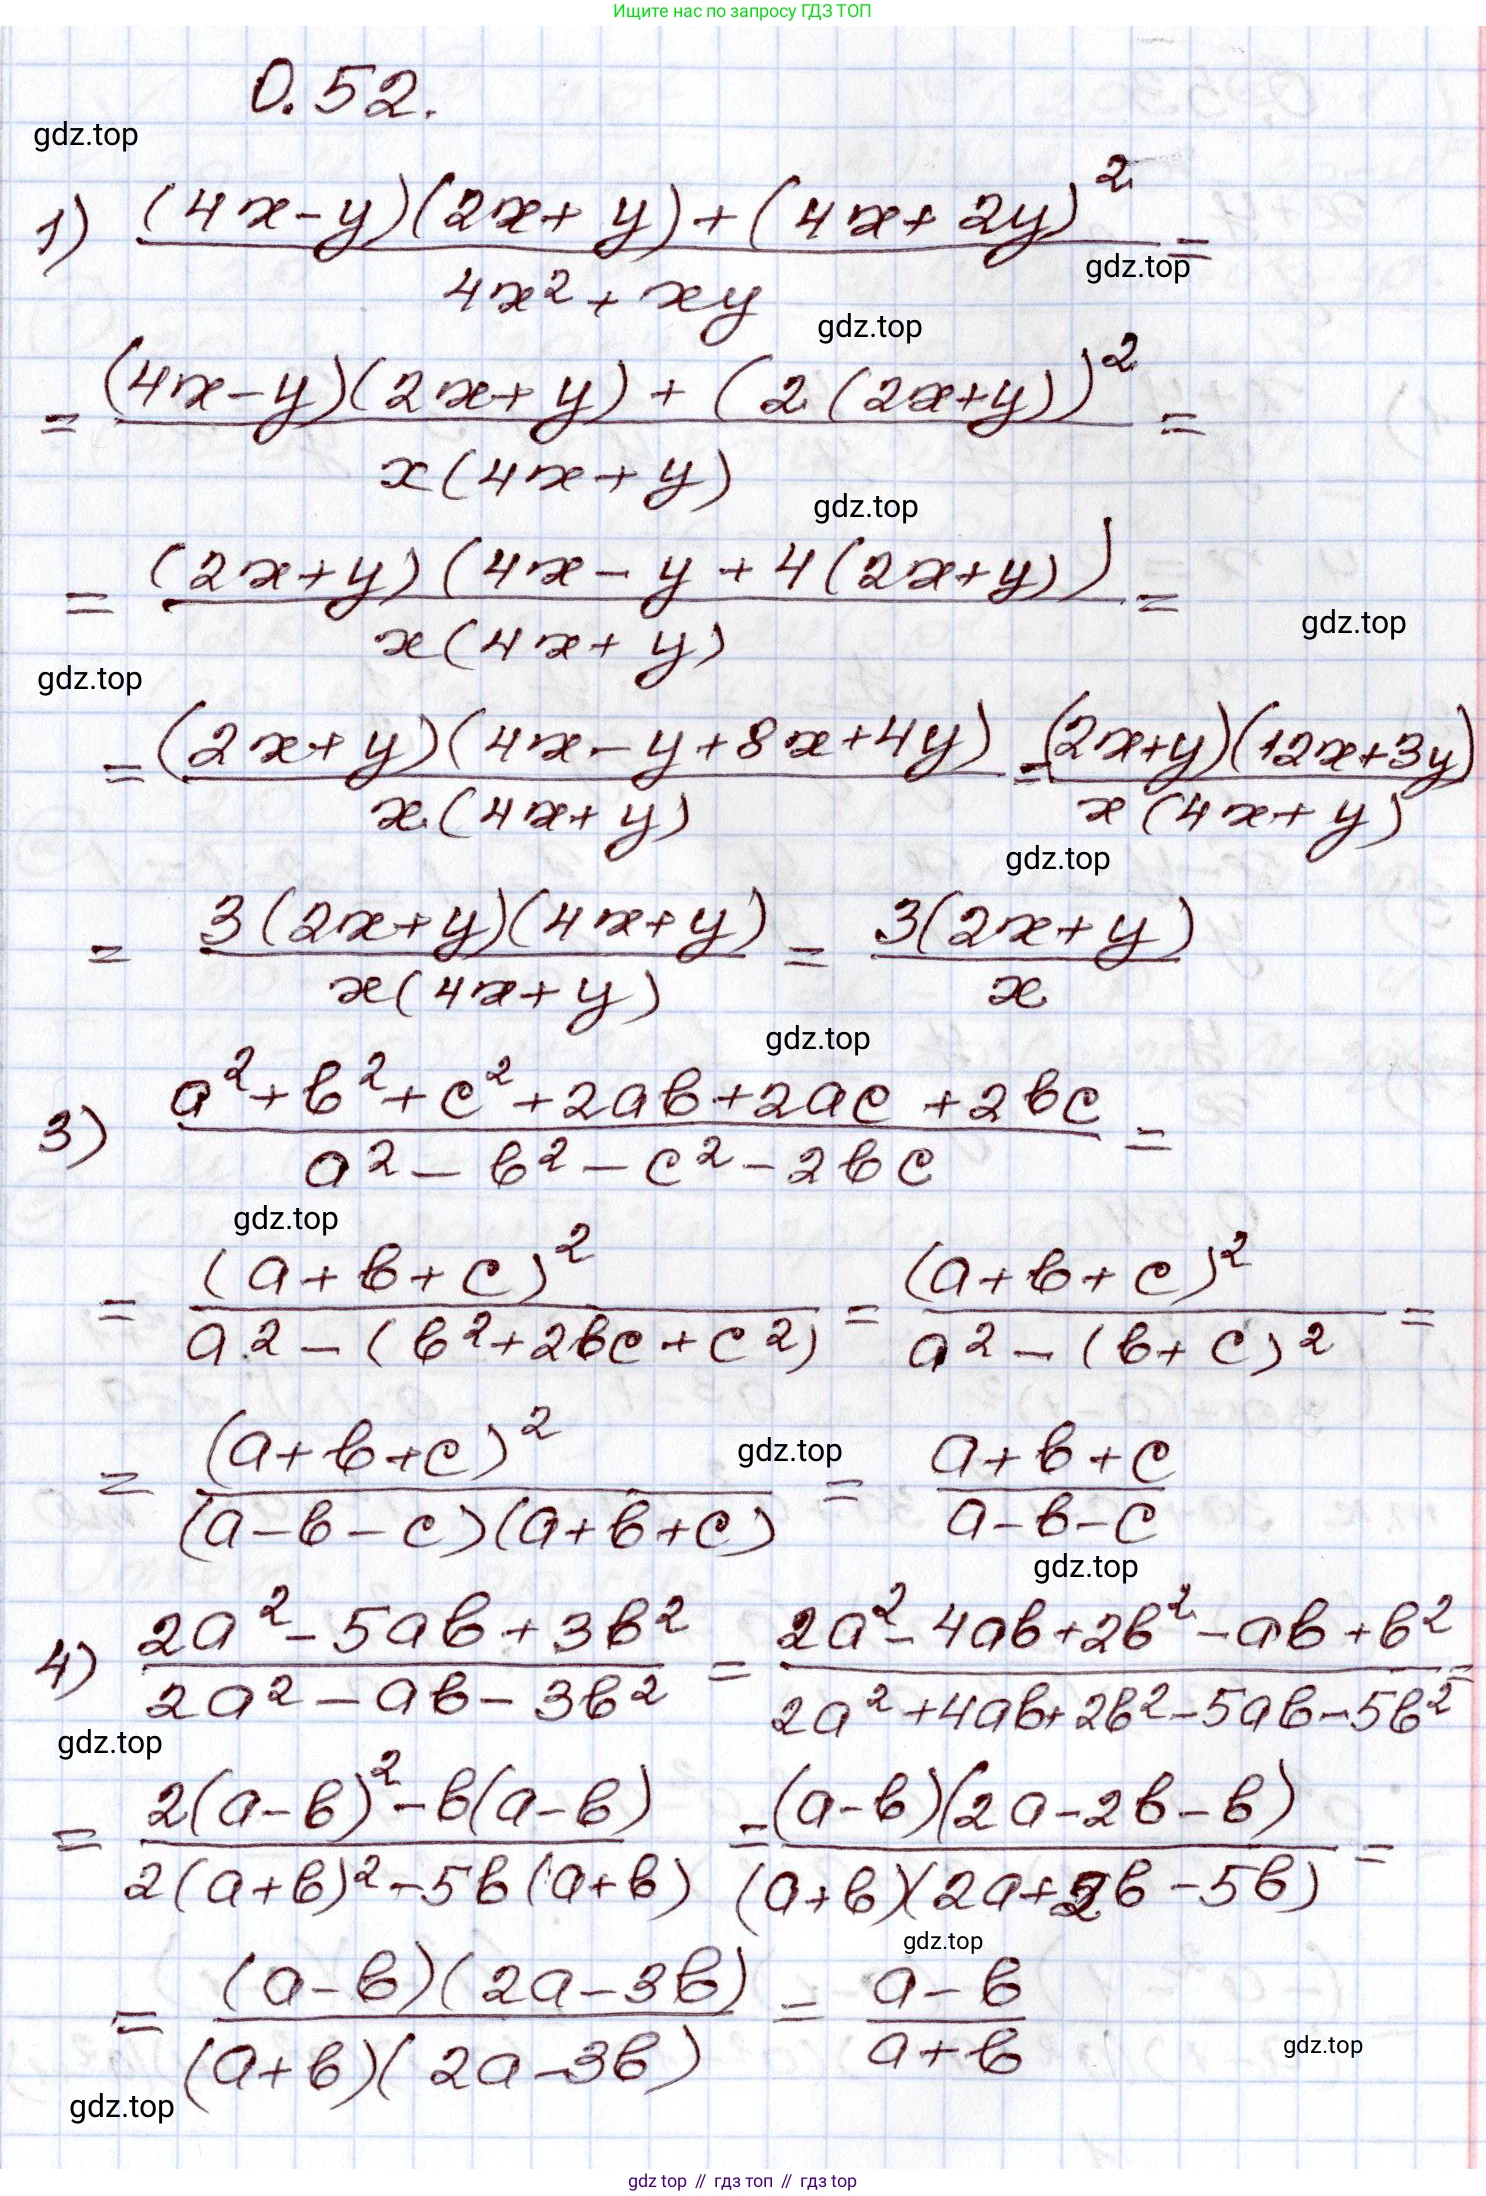 Ищите нас по запросу ГДЗ ТОП
0.52.
gdz.top
1) ((4x-y)(2x+y)+(4x+2y)²)/(4x²+xy) =
gdz.top
gdz.top
= ((4x-y)(2x+y)+(2(2x+y))²)/(x(4x+y)) =
gdz.top
= ((2x+y)(4x-y+4(2x+y)))/(x(4x+y)) =
gdz.top
gdz.top
= ((2x+y)(4x-y+8x+4y))/(x(4x+y)) = ((2x+y)(12x+3y))/(x(4x+y))
gdz.top
= (3(2x+y)(4x+y))/(x(4x+y)) = (3(2x+y))/x
gdz.top
3) (a²+b²+c²+2ab+2ac+2bc)/(a²-b²-c²-2bc) =
gdz.top
= (a+b+c)²/(a²-(b²+2bc+c²)) = (a+b+c)²/(a²-(b+c)²) =
= (a+b+c)²/((a-b-c)(a+b+c)) = (a+b+c)/(a-b-c)
gdz.top
gdz.top
4) (2a²-5ab+3b²)/(2a²-ab-3b²) = (2a²-4ab+2b²-ab+b²)/(2a²+4ab+2b²-5ab-5b²) =
gdz.top
= (2(a-b)²-b(a-b))/(2(a+b)²-5b(a+b)) = ((a-b)(2a-2b-b))/((a+b)(2a+2b-5b)) =
gdz.top
= ((a-b)(2a-3b))/((a+b)(2a-3b)) = (a-b)/(a+b)
gdz.top
gdz.top
gdz top // гдз топ // гдз top